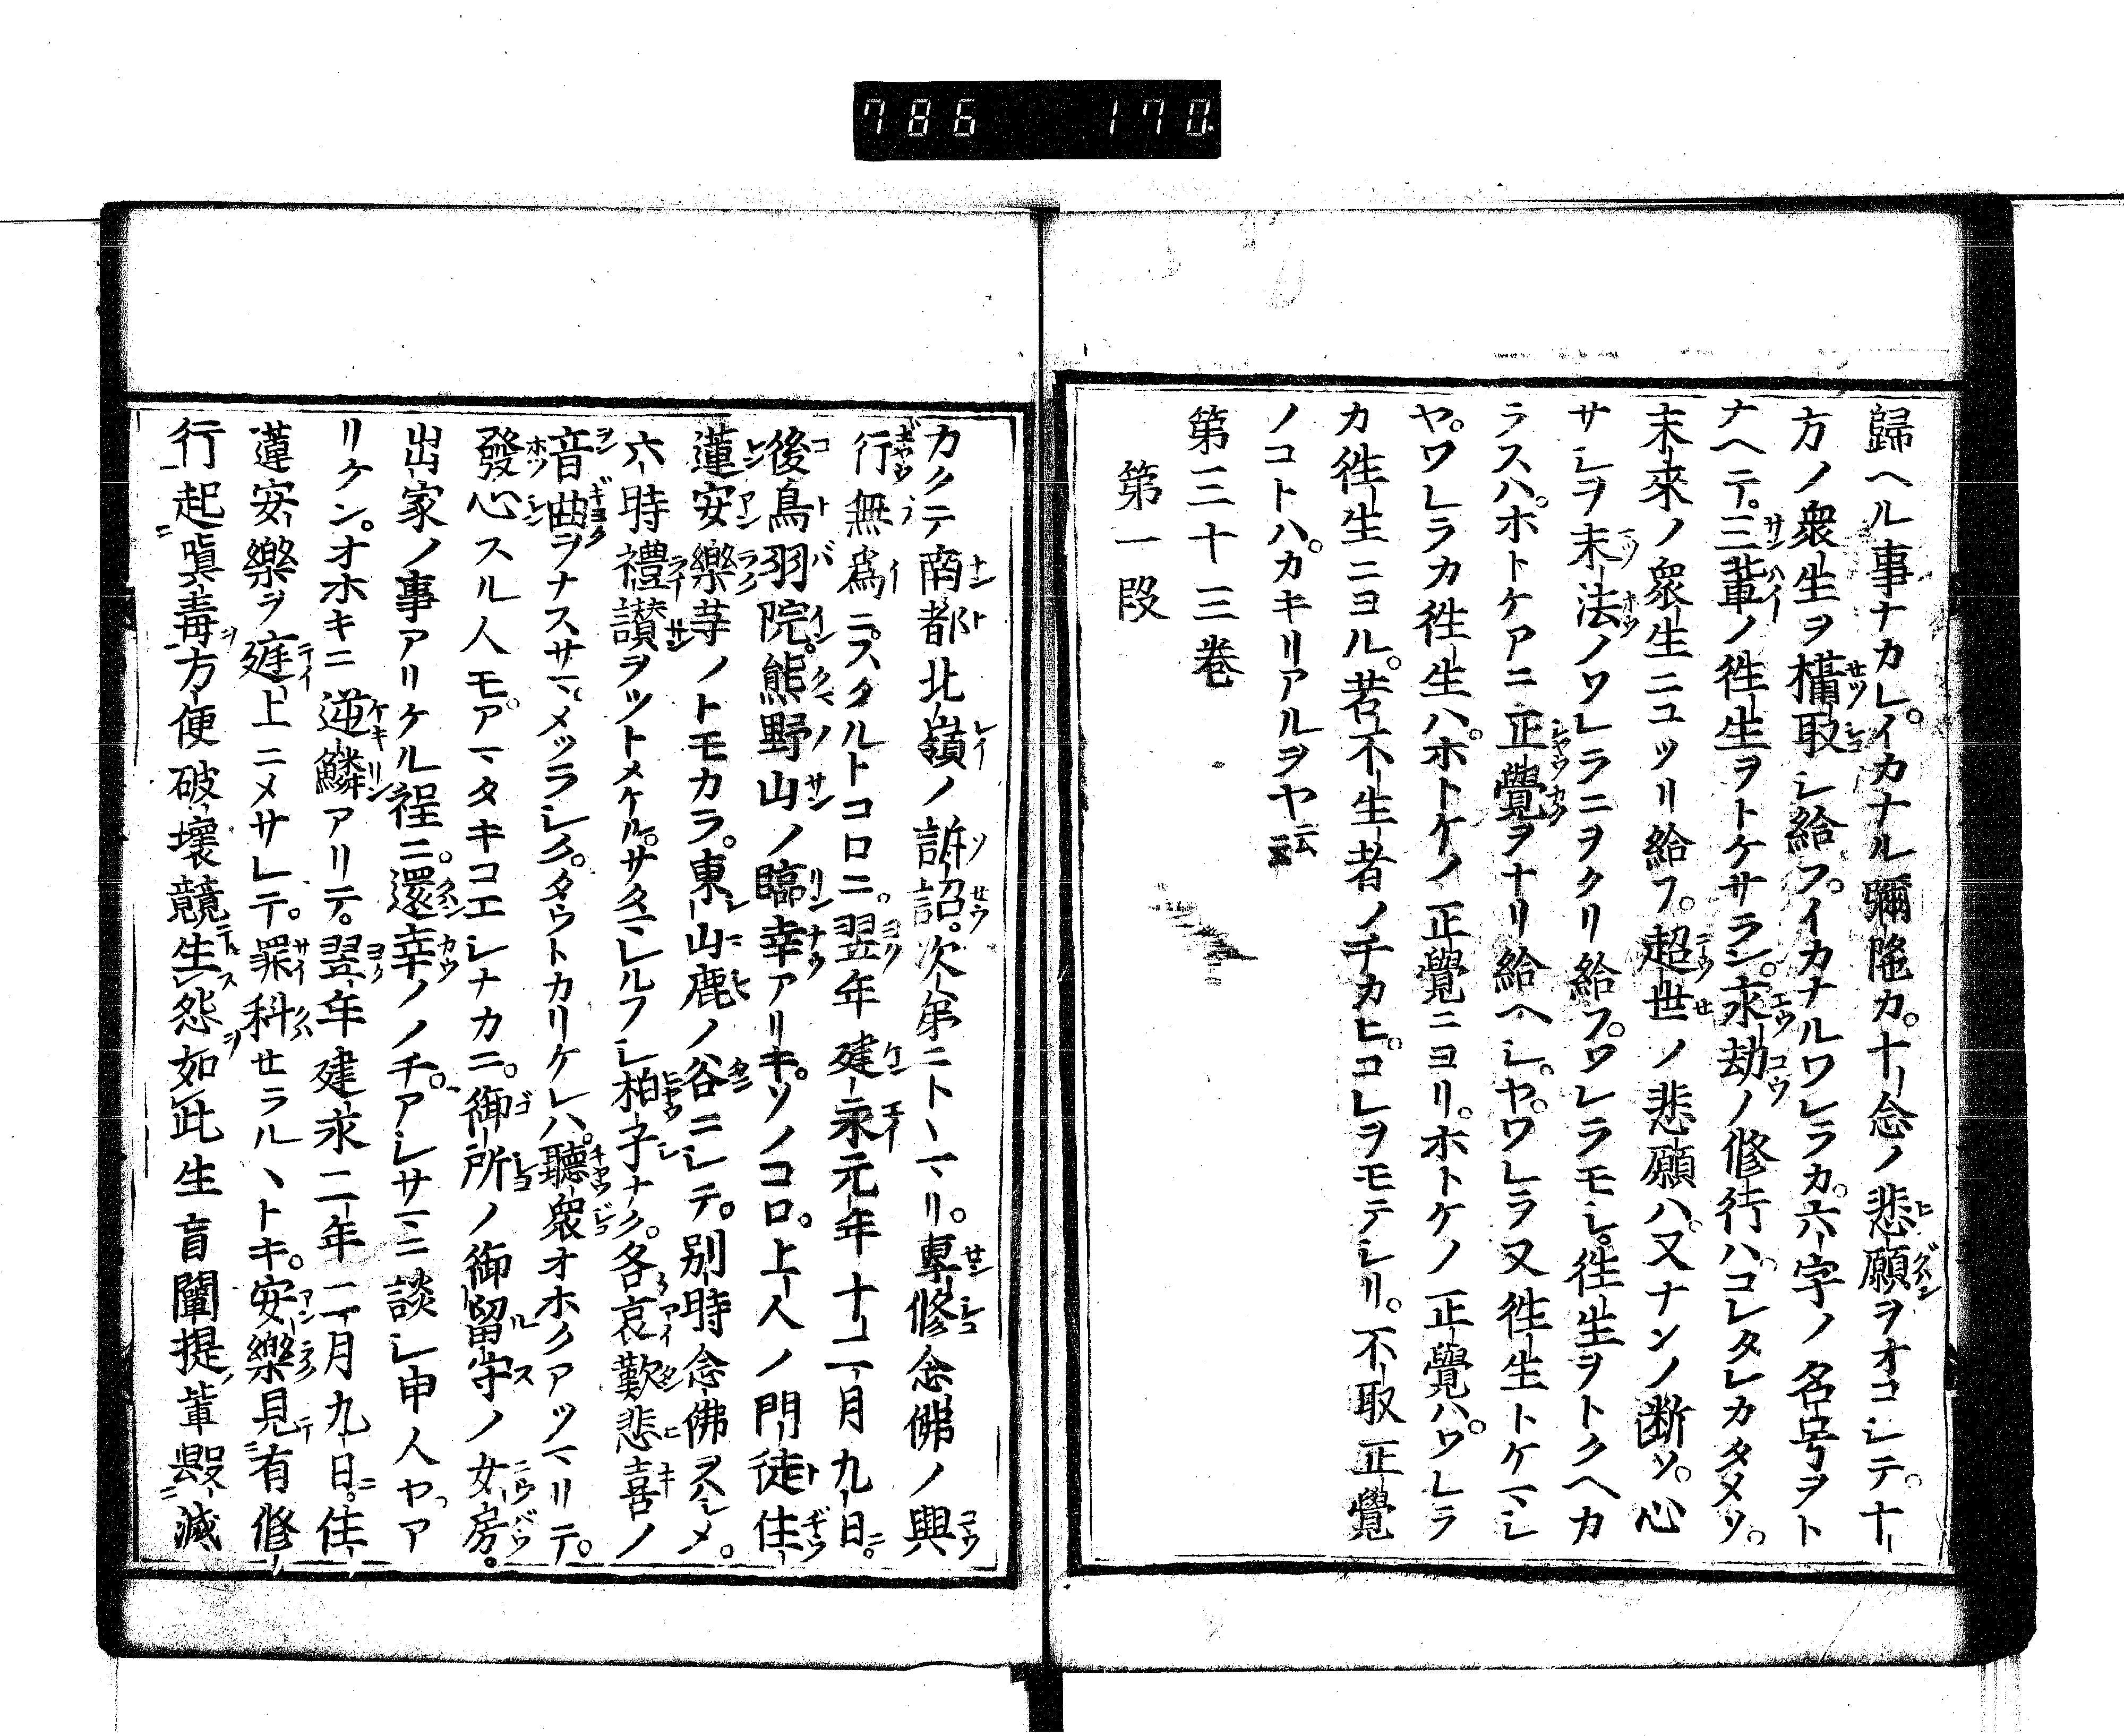 786 170
歸ヘル事ナカレ。イカナル彌陀カ。十念ノ悲願ヲオコシテ。十
方ノ衆生ヲ攝取シ給フ。イカナルワレラカ。六字ノ名号ヲト
ナヘテ。三輩ノ徃生ヲトケサラン。永劫ノ修行ハ。コレタレカタメソ。
末來ノ衆生ニユツリ給フ。超世ノ悲願ハ。又ナンノ断ソ。心
サシヲ末法ノワレラニヲクリ給フ。ワレラモシ。徃生ヲトクヘカ
ラスハ。ホトケアニ正覺ヲナリ給ヘシ。ヤ。ワレラ又徃生トケマシ
ヤ。ワレラカ徃生ハ。ホトケノ正覺ニヨリ。ホトケノ正覺ハ。ワレラ
カ徃生ニヨル。若不生者ノチカヒ。コレヲモテシリ。不取正覺
ノコトハ。カキリアルヲヤ云云
第三十三巻
第一段
カクテ南都北嶺ノ訴訟。次第ニトヽマリ。專修念佛ノ興
行無爲ニスクルトコロニ。翌年建永元年十二月九日。
後鳥羽院。熊野山ノ臨幸アリキ。ソノコロ。上人ノ門徒住
蓮安樂等ノトモカラ。東山鹿ノ谷ニシテ。別時念佛ヲハシメ。
六時禮讃ヲツトメケル。サタマレルフシ柏子ナク。各哀歎悲喜ノ
音曲ヲナスサマ。メツラシク。タウトカリケレハ。聽衆オホクアツマリテ。
發心スル人モアマタキコエシナカニ。御所ノ御留守ノ女房。
出家ノ事アリケル程ニ。還幸ノノチ。アシサマニ談シ申人ヤ。ア
リケン。オホキニ逆鱗アリテ。翌年建永二年二月九日。住
蓮安樂ヲ庭上ニメサレテ。罪科セラルヽトキ。安樂見有修
行起瞋毒方便破壞競生怨如此生盲闡提輩毀滅